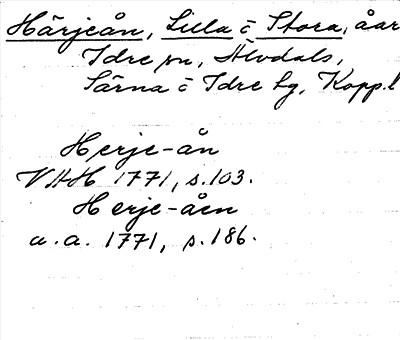 Härjeån, Lilla o Stora, åar
Idre sn, Älvdals,
Särna o Idre tg, Kopp.l
Herje-ån
VAH 1771, s.103.
Herje-åen
a.a. 1771, s.186.